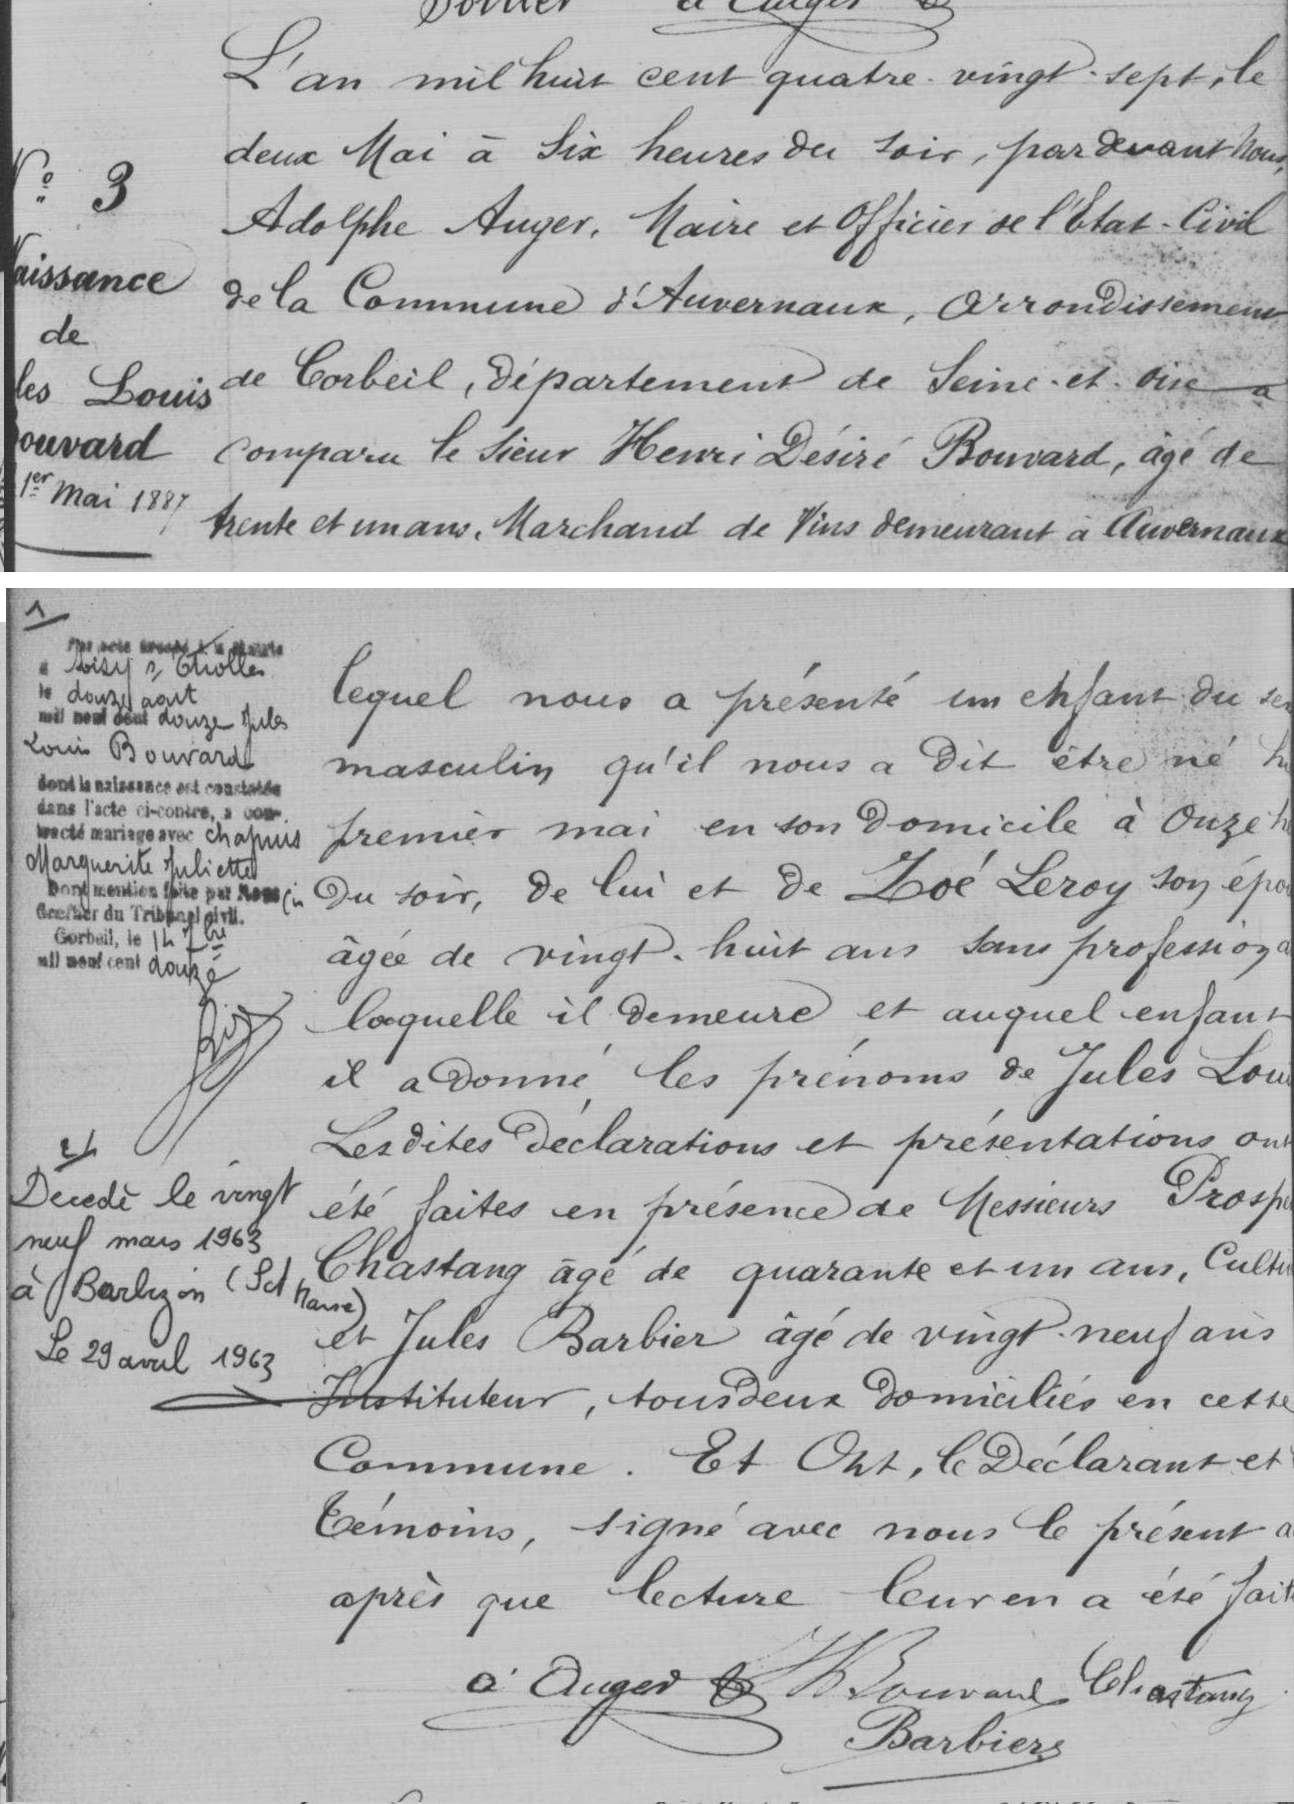 L'an mil huit cent quatre-vingt-sept, le
deux Mai à Six heures du soir, pardevant Nous,
Adolphe Auger, Maire et Officier de l'Etat-Civil
de la Commune d'Auvernaux, Arrondissement
de Corbeil, département de Seine-et-Oise a
comparu le Sieur Henri Désiré Bouvard, âgé de
trente et un ans, Marchand de Vins demeurant à Auvernaux
N° 3
aissance
de
les Louis
ouvard
1er Mai 1887
lequel nous a présenté un enfant du se
masculin qu'il nous a Dit être né h
premier mai en son Domicile à Onze h
Du soir, de lui et de Zoé Leroy son épou
âgée de vingt-huit ans sans profession a
laquelle il demeure et auquel enfant
il a donné les prénoms de Jules Loui
Lesdites Déclarations et présentations ont
été faites en présence de Messieurs Prospe
Chastang âgé de quarante et un ans, Culti
et Jules Barbier âgé de vingt-neuf ans
Instituteur, tous deux domiciliés en cette
Commune. Et Ont, le Déclarant et
Témoins, signé avec nous le présent a
après que lecture leur en a été fait
a Auger HBouvard Chastang
Barbier
1
Par acte dressé à la Mairie
à Soisy s/ Etiolles
le douze août
mil neuf cent douze Jules
Louis Bouvard
dont la naissance est constatée
dans l'acte ci-contre, a con-
tracté mariage avec Chapuis
Marguerite Juliette
Dont mention faite par Nous
Greffier du Tribunal civil.
Corbeil, le 14 7bre
mil neuf cent douze
2
Décédé le vingt
neuf mars 1963
à Barbizon (S et Marne)
Le 29 avril 1963